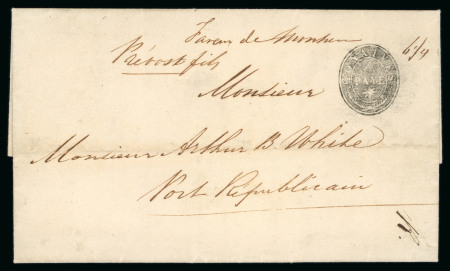 Faveur de Monsieur
Prévost fils
6 1/4
PAYÉ
Monsieur
Monsieur Arthur B. White
Port Républicain